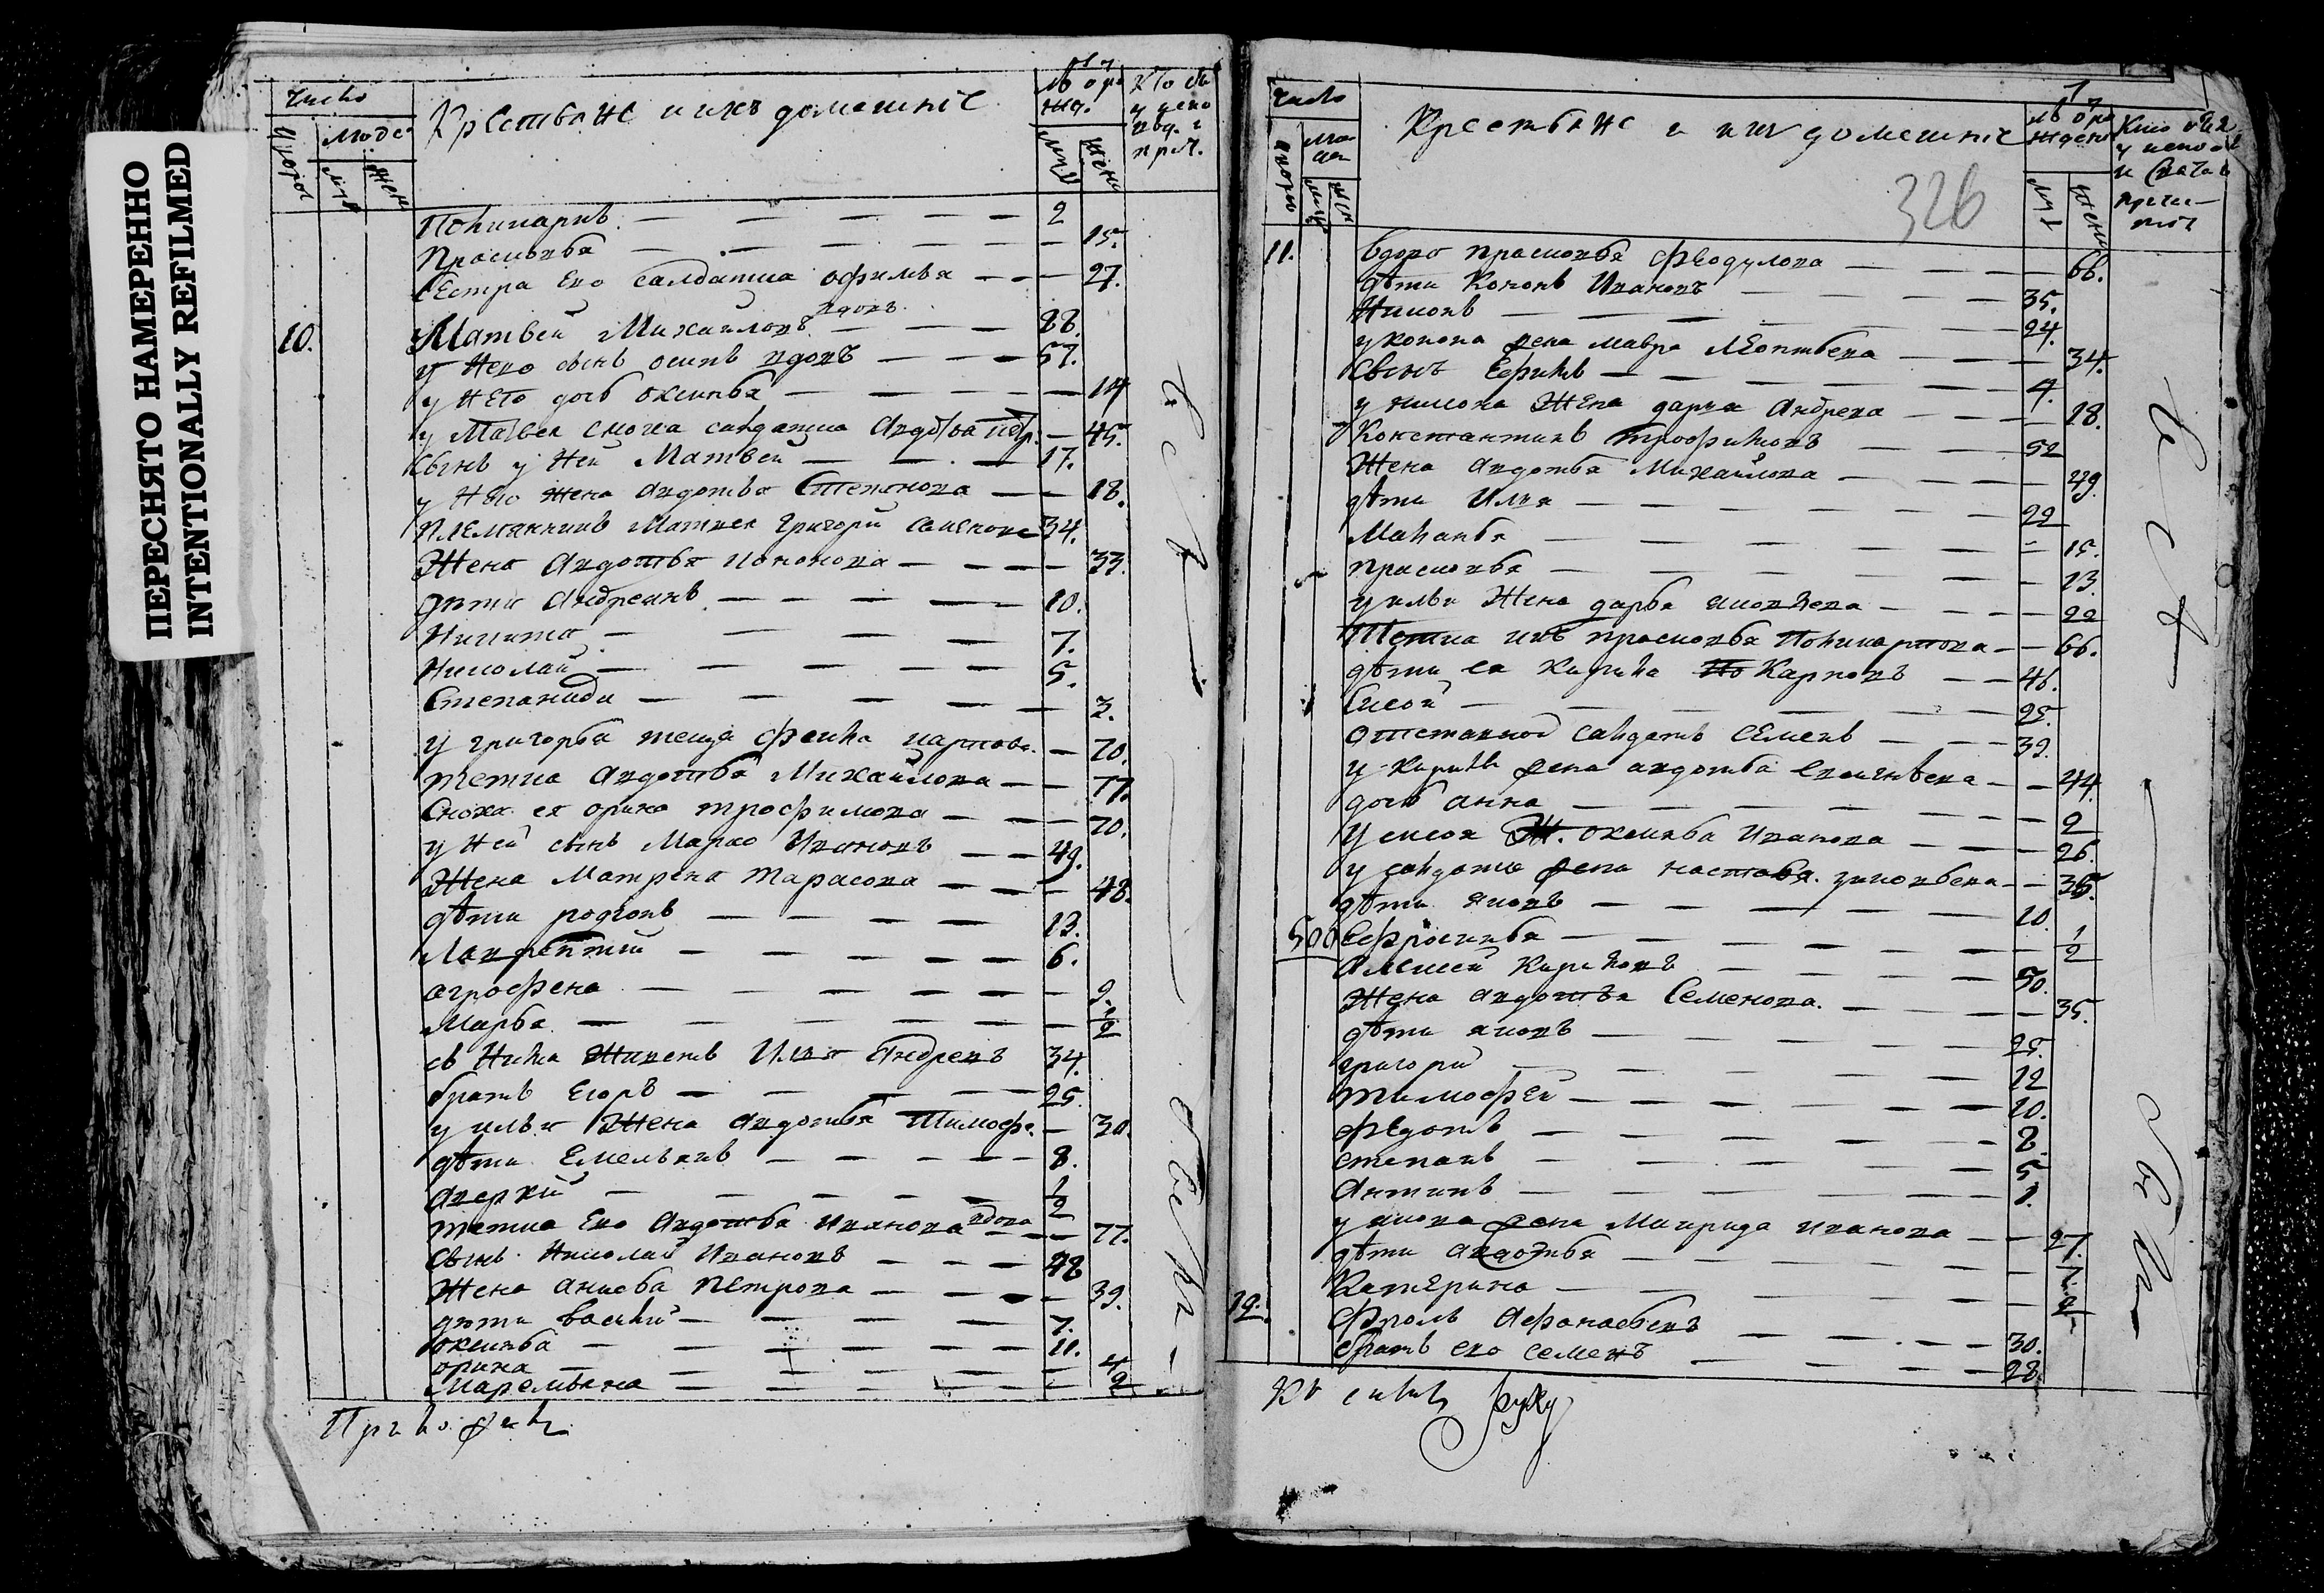 ПЕРЕСНЯТО НАМЕРЕННО
INTENTIONALLY REFILMED
число
люде
Крестьяне и ихъ домашніе
Поликарпъ — 2
Прасковья — 15.
сестра его салдатка офимья — 27.
10. Матвей Михайловъ вдовъ — 88.
у него сынъ осипъ вдовъ — 57.
у него дочь оксинья — 14
у Матвея сноха салдатка Авдотья — 45.
сынъ у ней Матвей — 17.
у него жена авдотья Степанова — 18.
племянникъ Матвея григори семенове 34.
Жена Авдотья — 33.
дѣти Андреянъ — 10.
Никита — 7.
Николай — 5.
Степанида — 3.
у григорья теща — 70.
тетка авдотья Михайлова — 77.
Сноха ея орина трофимова — 70.
у ней сынъ Марко Ивановъ — 49.
Жена Матрена тарасова — 48.
дѣти родионъ — 13.
Лаврентий — 6.
агрофена — 9.
Марья — 1/2
съ ними Илья Андревъ 34.
братъ Егоръ — 25.
у ильи Жена авдотья Тимофе. — 30.
дѣти Емельянъ — 8.
аверкий — 1/2
тетка Его Авдотья Иванова вдова — 77.
сынъ Николай Ивановъ — 48
Жена анисья Петрова — 39.
дѣти васили — 7.
оксинья — 11.
орина — 4
Маремьяна — 2
число
Крестьяне и ихъ домашніе
326
11. вдова прасковья Феодулова — 66.
дѣти Кононъ Ивановъ — 35.
Никонъ — 24.
у конона жена мавра Леонтьева — 34.
сынъ Ефимъ — 4.
у никона Жена дарья Андрева — 18.
Константинъ трофимовъ — 52
Жена авдотья Михайлова — 49.
дѣти Илья — 22
Маланья — 15.
прасковья — 13.
у ильи Жена дарья яковлева — 22
Тетка ихъ прасковья Поликарпова — 66.
дѣти ея Кирила Карповъ — 46.
Сисой — 25.
отставной салдатъ Семенъ — 32.
у кирилы жена авдотья — 44.
дочь анна — 2
у сисоя Ж. оксинья Иванова — 26.
у салдата жена настасья — 35.
дѣти яковъ — 10.
500 Ефросинья — 1/2
алексей Кириловъ — 50.
Жена авдотья Семенова. — 35.
дѣти яковъ — 25.
григори — 12
тимофей — 10.
Федотъ — 8.
степанъ — 5
Антипъ — 1.
у якова жена Маврида иванова — 27.
дѣти авдотья — 7.
Катерина — 2
12. Фролъ Афонасьевъ — 30.
братъ его семенъ — 28.
руку